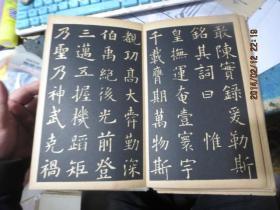 敢陳實録爰勒斯
銘其詞曰 惟
皇撫運奄壹寰宇
千載膺期萬物斯
覩功高大舜勤深
伯禹絶後光前登
三邁五握機蹈矩
乃聖乃神武克禍
2014/02/12 22:19